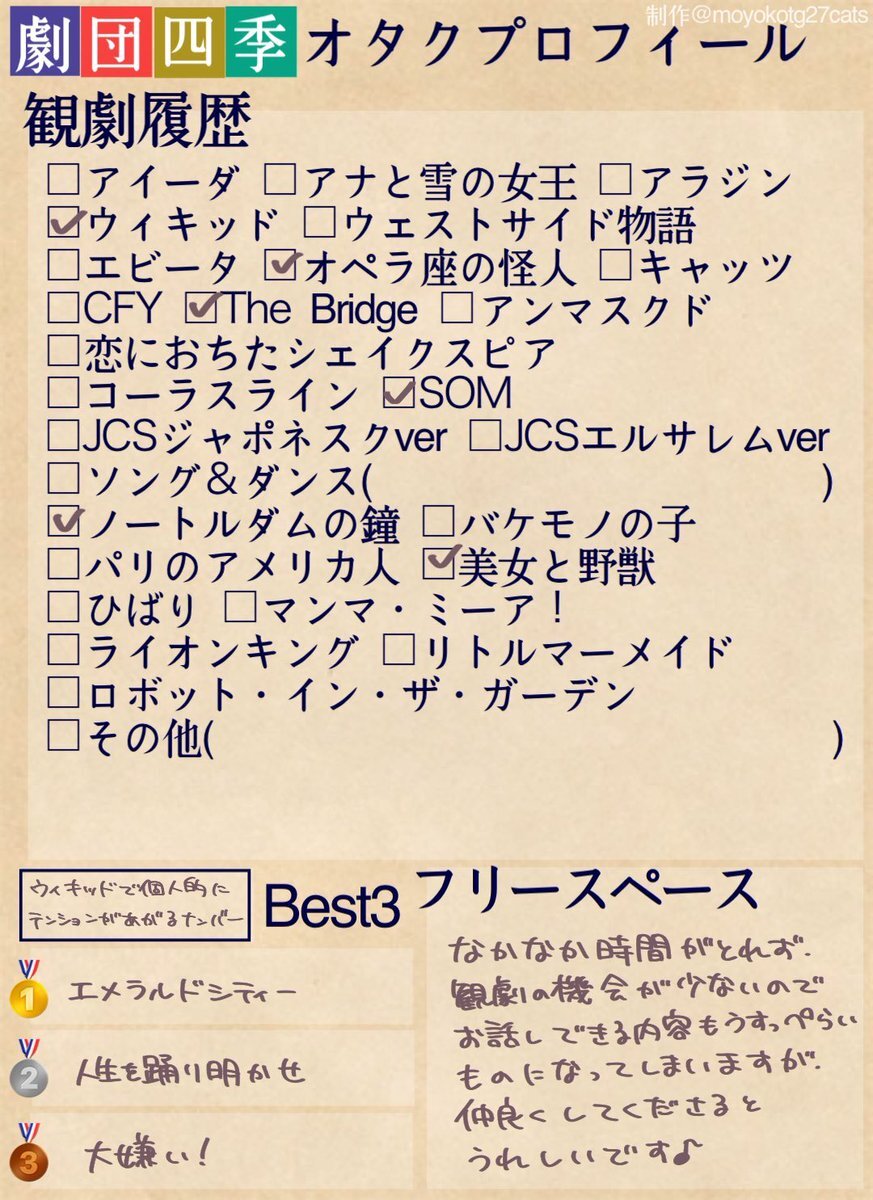 制作@moyokotg27cats
劇団四季オタクプロフィール
観劇履歴
□アイーダ □アナと雪の女王 □アラジン
☑ウィキッド □ウェストサイド物語
□エビータ ☑オペラ座の怪人 □キャッツ
□CFY ☑The Bridge □アンマスクド
□恋におちたシェイクスピア
□コーラスライン ☑SOM
□JCSジャポネスクver □JCSエルサレムver
□ソング&ダンス( )
☑ノートルダムの鐘 □バケモノの子
□パリのアメリカ人 ☑美女と野獣
□ひばり □マンマ・ミーア!
□ライオンキング □リトルマーメイド
□ロボット・イン・ザ・ガーデン
□その他( )
ウィキッドで個人的に
テンションがあがるナンバー
Best3
1 エメラルドシティー
2 人生を踊り明かせ
3 大嫌い!
フリースペース
なかなか時間がとれず、
観劇の機会が少ないので
お話しできる内容もうすっぺらい
ものになってしまいますが、
仲良くしてくださると
うれしいです♪